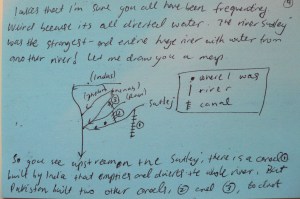 lakes that I'm sure you all have been frequenting
Weird because its all diverted water. The river Sutlej
was the strongest - and entire huge river with water from
another river! Let me draw you a map.
(Indus)
(Jhelum)
(Chenab)
(Ravi)
Sutlej
• where I was
river
canal
①
②
③
So you see upstream on the Sutlej, there is a canal ①
built by India that empties and diverts the whole river. But
Pakistan built two other canals, ② and ③, to